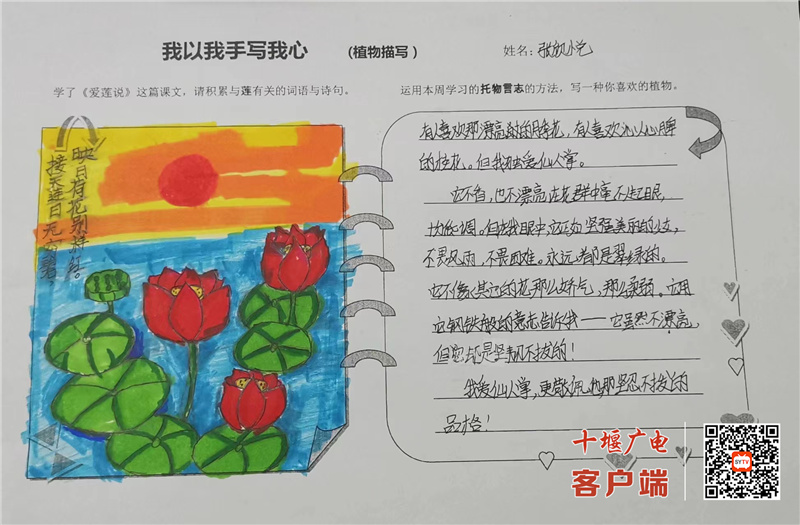 我以我手写我心 （植物描写）
姓名：
学了《爱莲说》这篇课文，请积累与莲有关的词语与诗句。
运用本周学习的托物言志的方法，写一种你喜欢的植物。
接天莲
映日荷花别样红。
有人喜欢那漂亮的，有人喜欢沁人心脾
的桂花。但我独爱仙人掌。
它不香，也不漂亮，在花群中毫不起眼，
。但在我眼中它正如坚强美丽的，
不畏风雨，不畏困难。永远都是翠绿的。
它不像其它的花那么娇气，那么柔弱。它用
它钢铁般的意志告诉我——它虽然不漂亮，
但它却是坚韧不拔的！
我爱仙人掌，更敬佩他那坚忍不拔的
品格！
十堰广电
客户端
SYTV